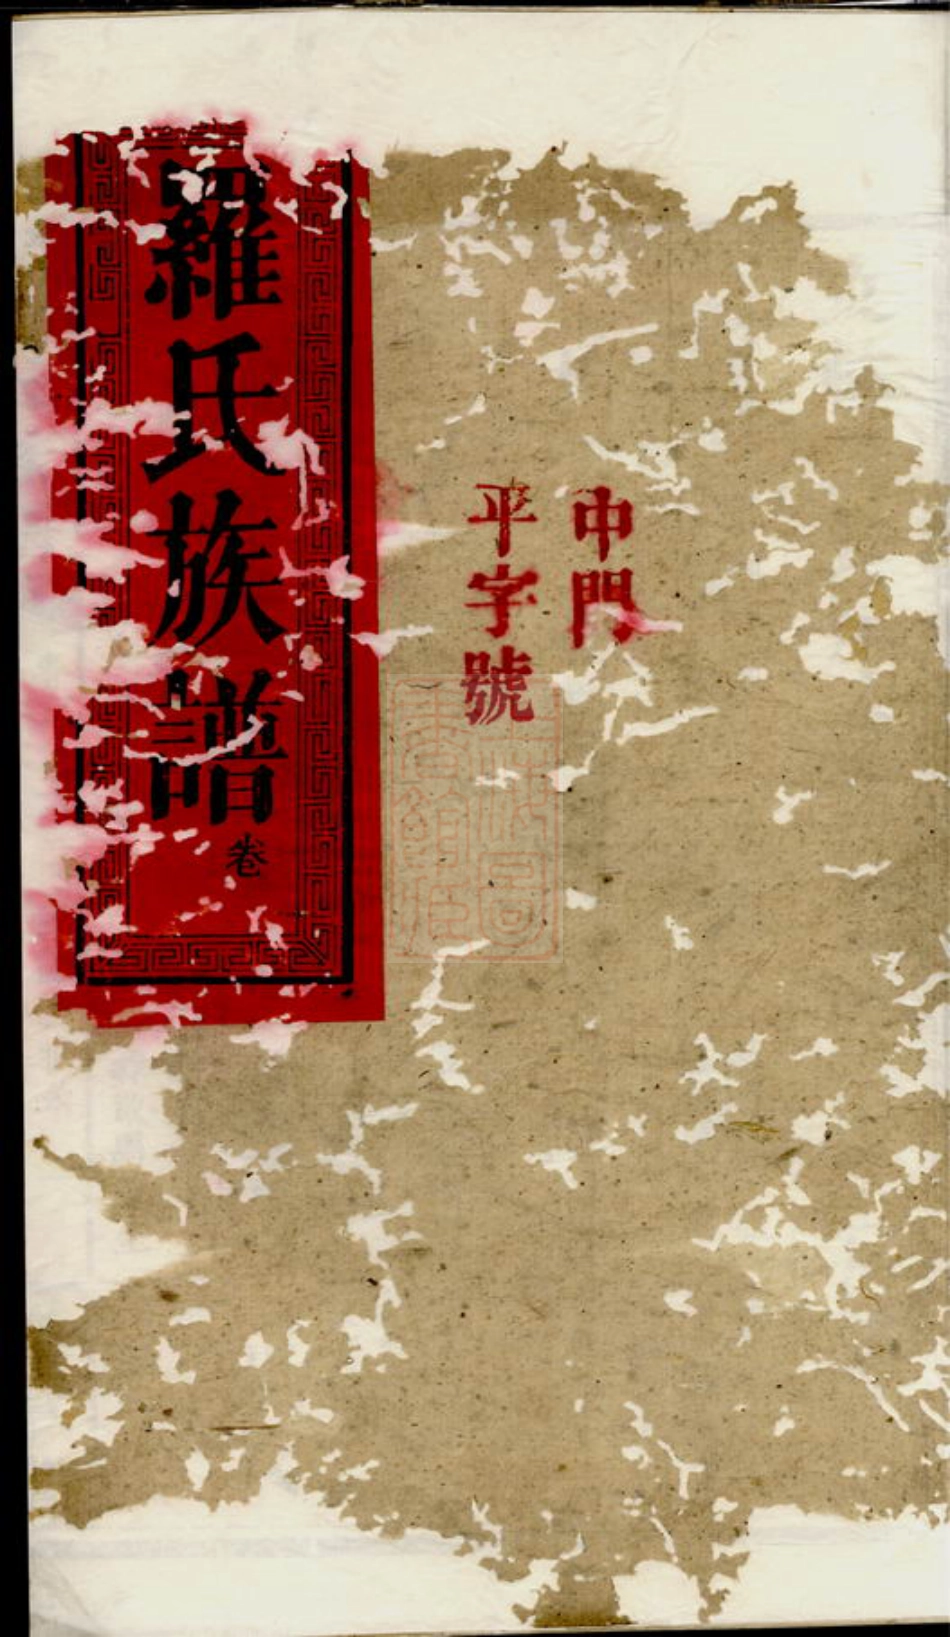 中門
平字號
羅氏族譜
卷